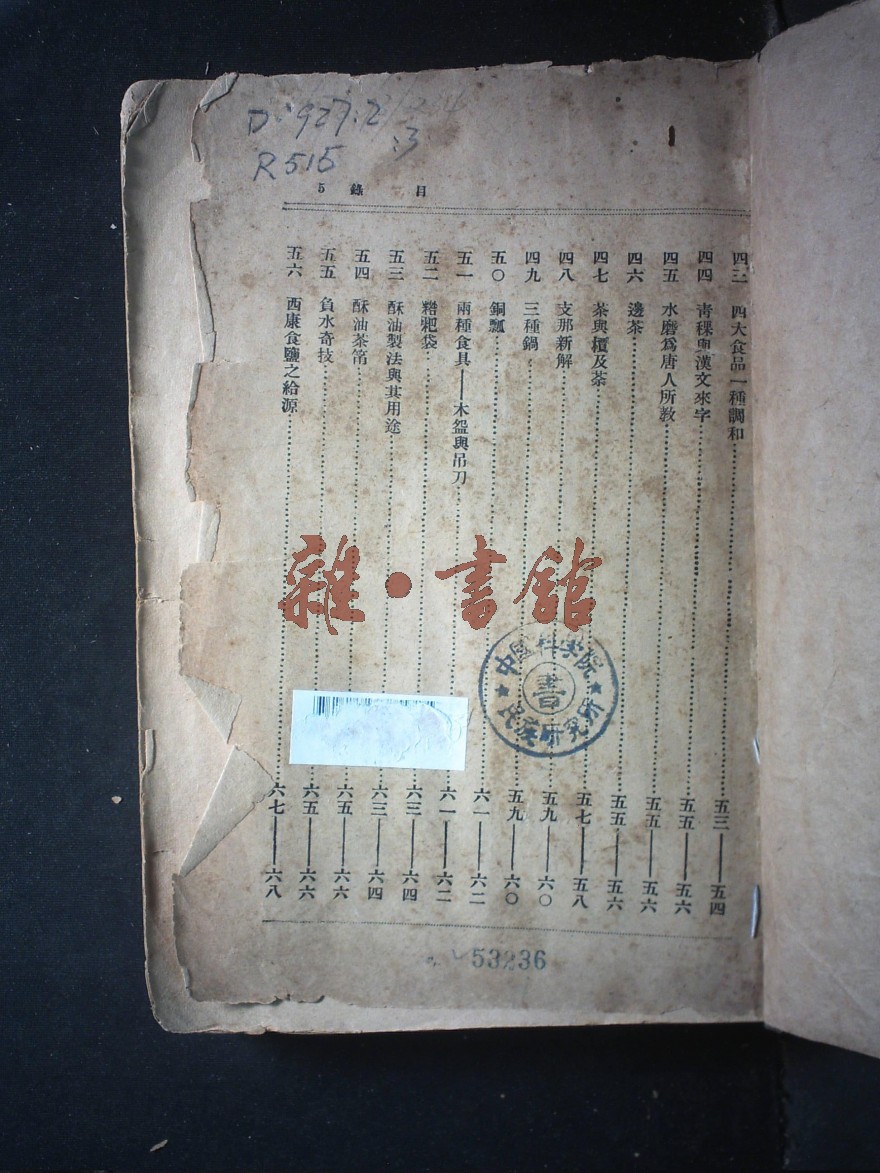 D 927.2
:3
R515
目 錄 5
四三 四大食品一種調和 五三——五四
四四 青稞與漢文來字 五五——五六
四五 水磨爲唐人所教 五五——五六
四六 邊茶 五五——五六
四七 茶與檟及茶 五七——五八
四八 支那新解 五九——六〇
四九 三種鍋 五九——六〇
五〇 銅瓢 六一——六二
五一 兩種食具——木盌與吊刀 六一——六二
五二 糌粑袋 六三——六四
五三 酥油製法與其用途 六三——六四
五四 酥油茶筩 六五——六六
五五 負水奇技 六五——六六
五六 西康食鹽之給源 六七——六八
雜·書館
中国科学院
書
民族研究所
53236